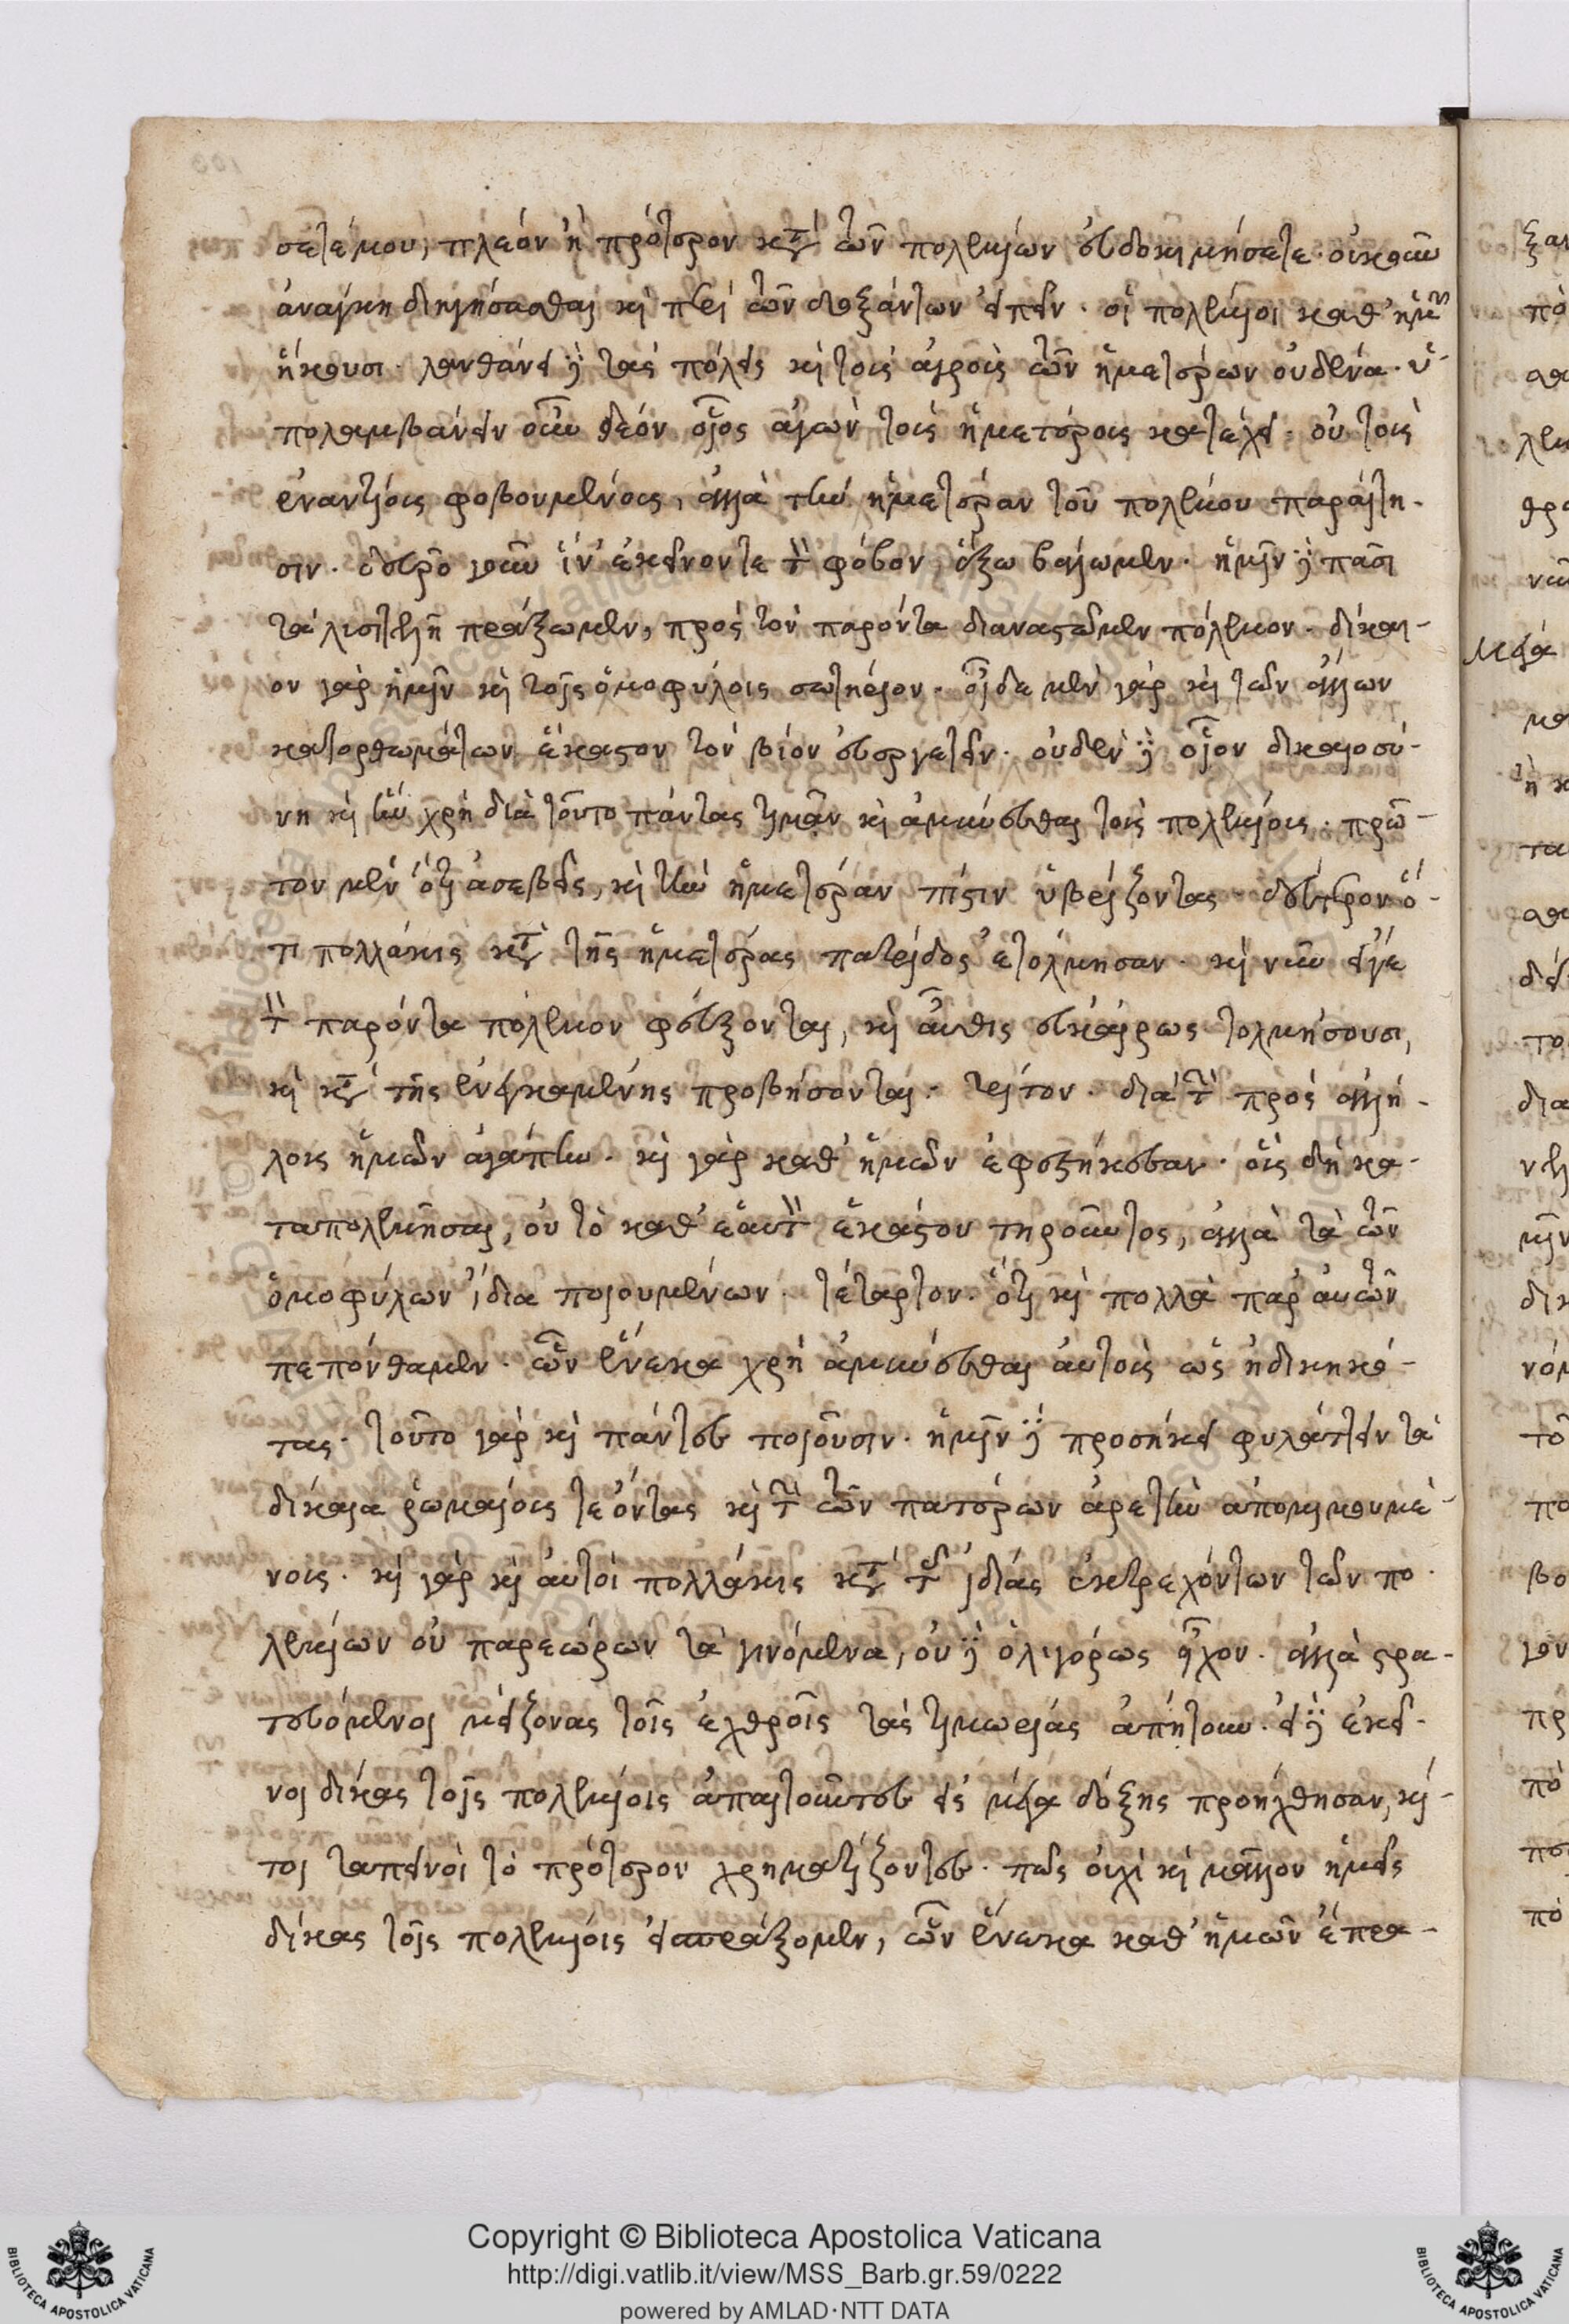 σετέ μου, πλεόν ἢ πρότερον κατὰ τῶν πολεμίων εὐδοκιμήσετε. οὐκοῦν
ἀνάγκη διηγήσασθαι καὶ περὶ τῶν δοξάντων εἰπεῖν. οἱ πολέμιοι καθ' ἡμῶν
ἥκουσι. λανθάνει δὲ τὰς πόλεις καὶ τοὺς ἀγροὺς τῶν ἡμετέρων οὐδένα. ὑ-
πολαμβάνειν οὖν δέον οἷος ἀγὼν τοὺς ἡμετέρους κατέχει. οὐ τοὺς
ἐναντίους φοβουμένοις, ἀλλὰ τὴν ἡμετέραν τοῦ πολέμου παραίτη-
σιν. δεῦρο γοῦν ἵν' ἐκεῖνον τε τὸν φόβον, ἔξω βαίωμεν. ἡμῖν δὲ πᾶσι
τὰ λυσιτελῆ πράξωμεν, πρὸς τὸν παρόντα διαναστῶμεν πόλεμον. δίκαι-
ον γὰρ ἡμῖν καὶ τοῖς ὁμοφύλοις σωτήριον. οἶδα μὲν γὰρ καὶ τῶν ἄλλων
κατορθωμάτων ἕκαστον τὸν βίον εὐεργετεῖν. οὐδὲν δὲ οἷον δικαιοσύ-
νη καὶ ἣν χρὴ διὰ τοῦτο πάντας τιμᾶν καὶ ἀμύνεσθαι τοὺς πολεμίους. πρῶ-
τον μὲν ὅτι ἀσεβεῖς, καὶ τὴν ἡμετέραν πίστιν ὑβρίζοντας. δεύτερον ὅ-
τι πολλάκις κατὰ τῆς ἡμετέρας πατρίδος ἐτόλμησαν. καὶ νῦν εἴγε
τὸν παρόντα πόλεμον φεύξονται, καὶ αὖθις εὐκαίρως τολμήσουσι,
καὶ κατὰ τῆς ἐνεγκαμένης προβήσονται. τρίτον. διὰ τὴν πρὸς ἀλλή-
λους ἡμῶν ἀγάπην. καὶ γὰρ καθ' ἡμῶν ἐφεστήκεσαν. οὓς δὴ κα-
ταπολεμῆσαι, οὐ τὸ καθ' ἑαυτὸν ἑκάστου τηροῦντος, ἀλλὰ τὰ τῶν
ὁμοφύλων ἴδια ποιουμένων. τέταρτον. ὅτι καὶ πολλὰ παρ' αὐτῶν
πεπόνθαμεν. ὧν ἕνεκα χρὴ ἀμύνεσθαι αὐτοὺς ὡς ἠδικηκό-
τας. τοῦτο γὰρ καὶ πάντες ποιοῦσιν. ἡμῖν δὲ προσήκει φυλάττειν τὰ
δίκαια ῥωμαίους τε ὄντας καὶ τὴν τῶν πατέρων ἀρετὴν ἀπομιμουμέ-
νοις. καὶ γὰρ καὶ αὐτοὶ πολλάκις κατὰ τῆς ἰδίας ἐκτρεχόντων τῶν πο-
λεμίων οὐ παρεώρων τὰ γινόμενα, οὐδὲ ὀλιγώρως εἶχον. ἀλλὰ στρα-
τευόμενοι μείζονας τοῖς ἐχθροῖς τὰς τιμωρίας ἀπῄτουν. εἰ δὲ ἐκεῖ-
νοι δίκας τοῖς πολεμίοις ἀπαιτοῦντες εἰς μέγα δόξης προήχθησαν, καί-
τοι ταπεινοὶ τὸ πρότερον χρηματίζοντες. πῶς οὐχὶ καὶ μᾶλλον ἡμεῖς
δίκας τοῖς πολεμίοις εἰσπράξομεν, ὧν ἕνεκα καθ' ἡμῶν ἔπρα-
Copyright © Biblioteca Apostolica Vaticana
http://digi.vatlib.it/view/MSS_Barb.gr.59/0222
powered by AMLAD·NTT DATA
BIBLIOTECA APOSTOLICA VATICANA
BIBLIOTECA APOSTOLICA VATICANA